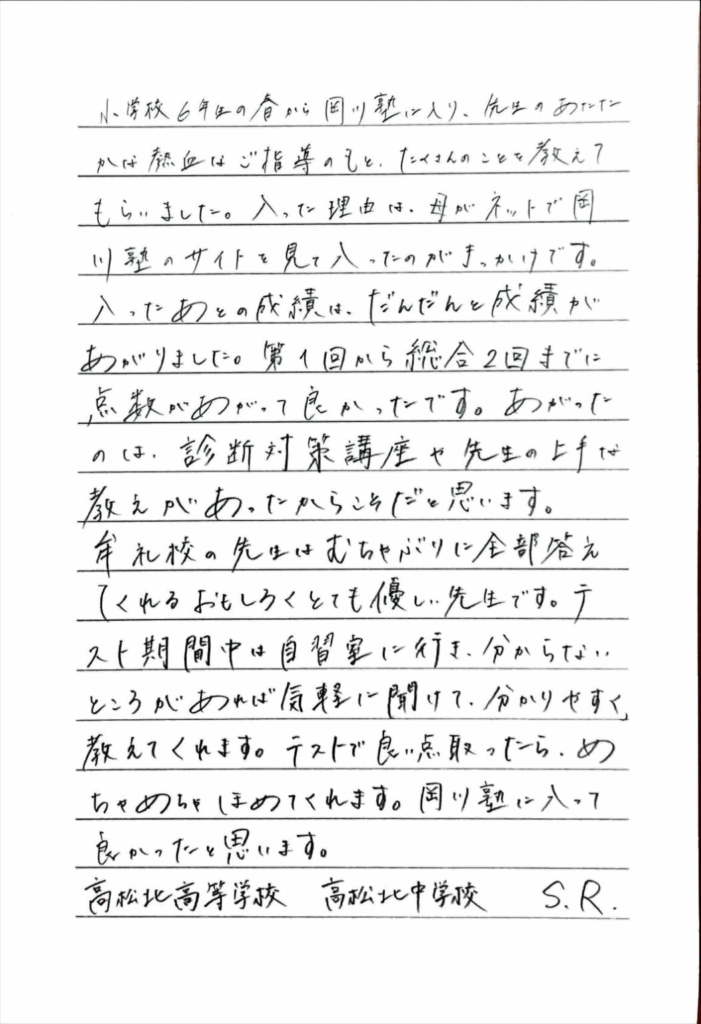 小学校6年生の春から岡川塾に入り、先生のあたた
かな熱血なご指導のもと、たくさんのことを教えて
もらいました。入った理由は、母がネットで岡
川塾のサイトを見て入ったのがきっかけです。
入ったあとの成績は、だんだんと成績が
あがりました。第1回から総合2回までに
点数があがって良かったです。あがった
のは、診断対策講座や先生の上手な
教えがあったからこそだと思います。
牟礼校の先生はむちゃぶりに全部答え
てくれるおもしろくとても優しい先生です。テ
スト期間中は自習室に行き、分からない
ところがあれば気軽に聞けて、分かりやすく
教えてくれます。テストで良い点取ったら、め
ちゃめちゃほめてくれます。岡川塾に入って
良かったと思います。
高松北高等学校 高松北中学校 S.R.